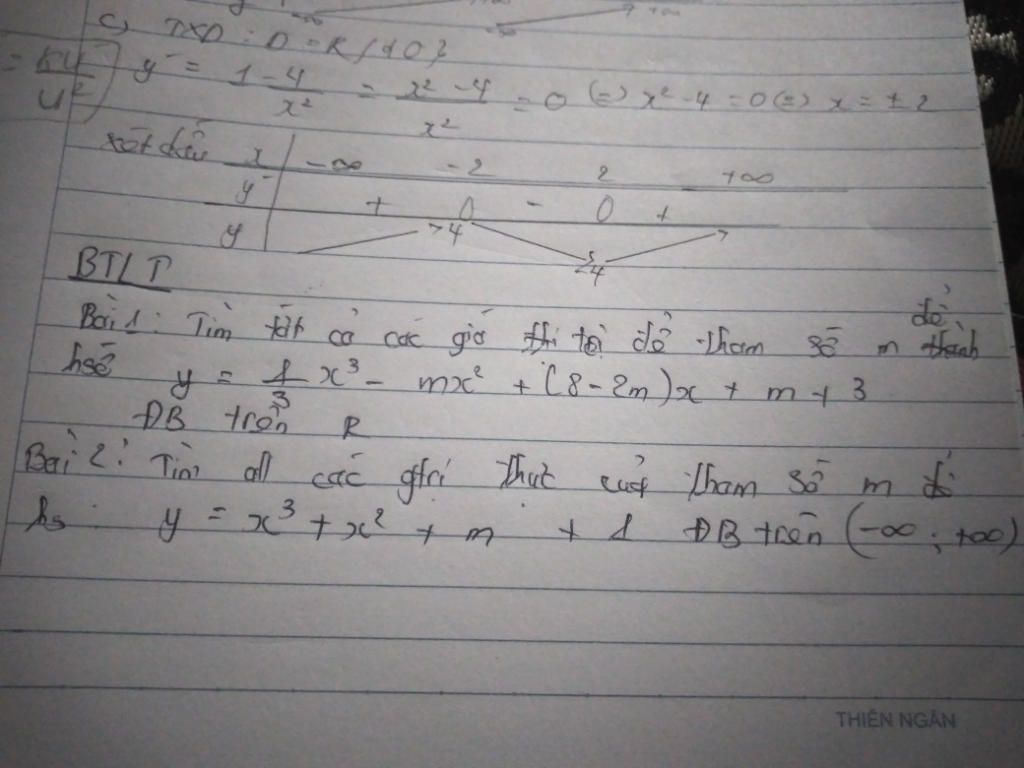 c, TXD : D = R / {0}
y' = 1 - 4/x² = x² - 4/x² = 0 (=) x² - 4 = 0 (=) x = ± 2
xét dấu x -∞ -2 2 +∞
y' + 0 - 0 +
y 4 4
BTLT
Bài 1: Tìm tất cả các giá để tham số m để
hsố y = 1/3 x³ - mx² + (8 - 2m)x + m + 3
ĐB trên R
Bài 2: Tìm all các gtrị thực của tham số m để
hs y = x³ + x² + m + 1 ĐB trên (-∞ ; +∞)
THIÊN NGÂN